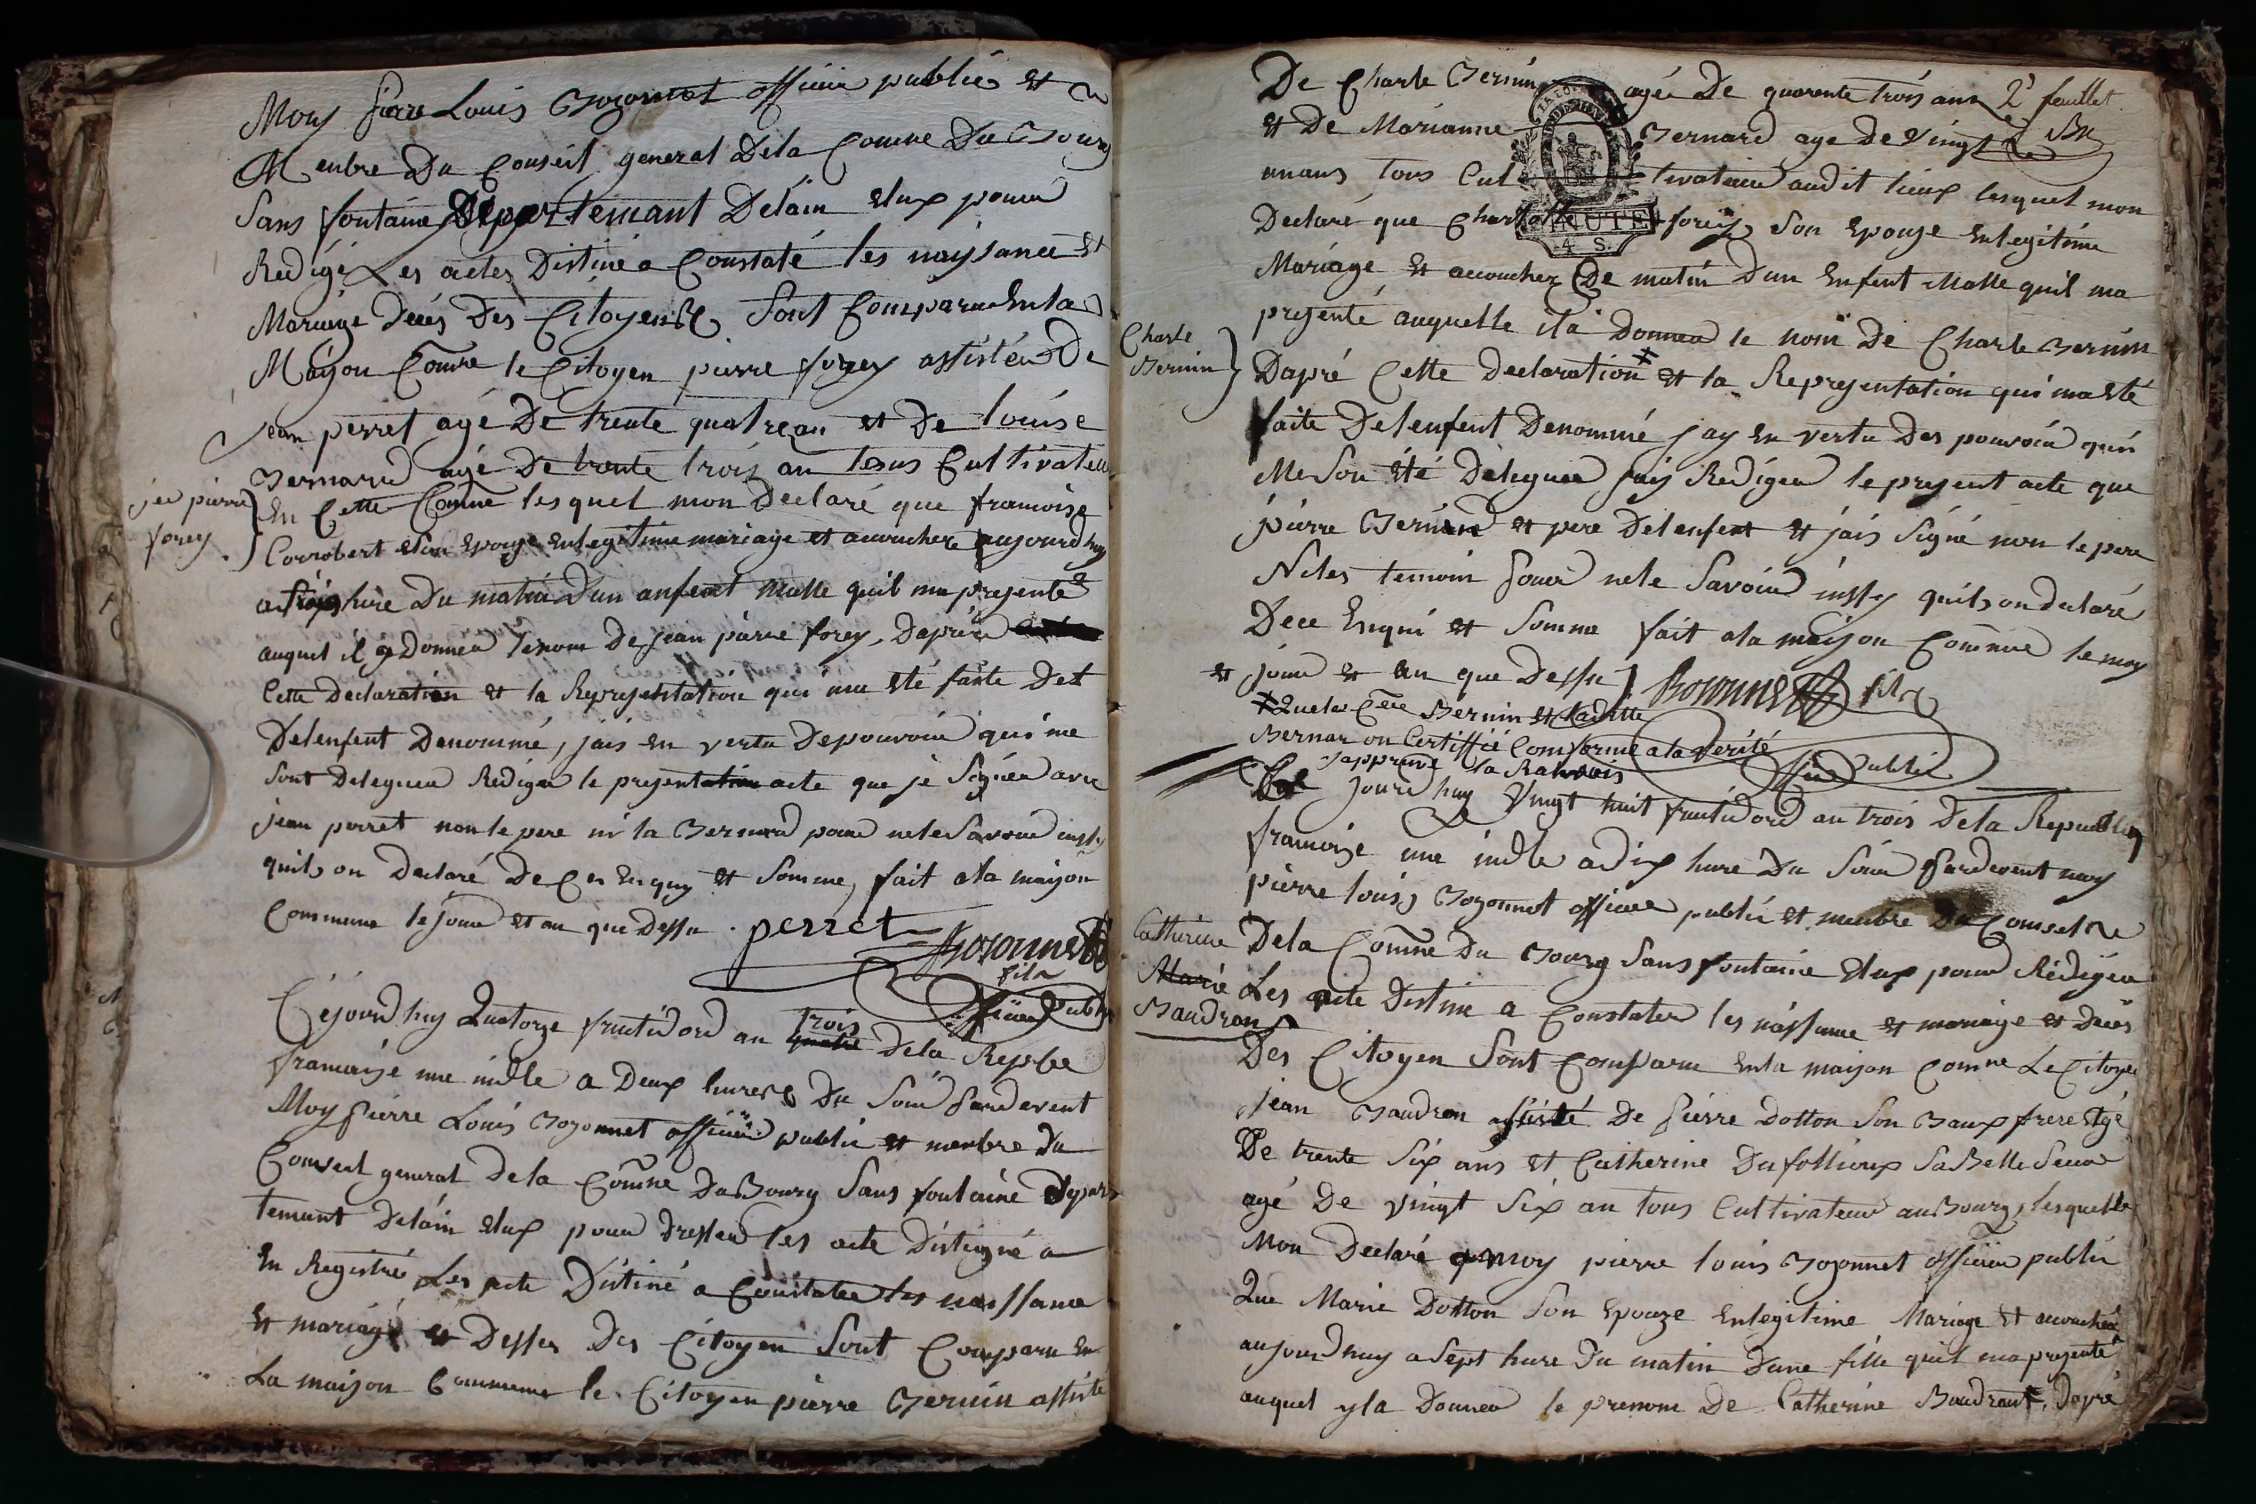 Moy pierre Louis Bozonnet officier public et
Menbre Du Conseil general Dela Comne Du Bourg
Sans fontaine Departemant Delain elux pour
Redigé Les actes Distiné a Constaté les nayssance et
Mariage décés Des Citoyens Sont Comparu Enla
Maison Comne le Citoyen pierre forey assisté De
jean perret agé De trente quatre an et De louise
Bernard agé De trente trois an tous Cultivateur
jen pierre
forey
En Cette Comne lesquel mon Declaré que francoise
Corrobert son Epouze enlegitime mariage et acouchere aujourdhuy
a trois hure Du matin Dun anfent malle quil ma presenté
auquel il a Donnéa lenom De jean pierre forey, Daprés
Cette Declaration et la Representation qui ma eté faite Det
Delenfent Denommé, jais en vertu Depouvoir qui me
sont Deleguea Rediger le presentation acte que je Signéa avec
jean perret non le pere ni la Bernard pour nele Savoir insy
quils on Declaré De Ces Enquy et Somme, fait ala maison
Commune le jour et an que Dessu . perret
Bozonnet
fils
officier Public
Cejourdhuy Quatorze fructidord an trois quatre Dela Repbe
francaise une indle a Deux hures Du Soir pardevent
Moy pierre Louis Bozonnet officier public et menbre Du
Conseil general Dela Comne Du Bourg Sans fontaine Depar
temant Delain elux pour Dresser les acte Distigné a
En Registré Les acte Distiné a Constatee les naissance
et mariage et Desses Des Citoyen Sont Comparu En
La maison Commune le Citoyen pierre Bernin assisté
De Charle Bernin agé De quarente trois ans 2e feuillet
et De Marianne Bernard age De Vingt
unans tous Cultivateur audit lieux lesquel mon
MINUTE
4 S.
Declaré que Charlotte forey Son Epouze Enlegitime
Mariage et acoucher Ce matin Dun Enfent Malle quil ma
presenté auquelle ila Donnea le nom De Charle Bernin
Charle
Bernin
Dapré Cette Declaration ‡ et la Representation qui ma eté
faite Delenfent Denommé jay En vertu Des pouvoir quin
Me Son été Deleguea fais Redigea le present acte que
pierre Bernin et pere Delenfent et jais Signé non le pere
Nites temoin pour nele Savoir insy quils on declaré
Dece Enqui et Somme fait ala maison Commune le moy
et jour et an que Dessu Bozonnet fils
‡ Quele Cen Bernin et Laditte
Bernar on Certiffié Comforme ala verité
japprouve la
officier Public
Ce Jourdhuy Vingt huit fructidord an trois Dela Republiq
francoise une indle a dix hure Du Soir pardevent moy
pierre louis Bozonnet officier public et menbre Du Conseil
Catherine
Marie
Baudran
Dela Comne Du Bourg Sans fontaine elux pour Redigea
Les acte Distine a Constater les naissance et mariage et Decés
Des Citoyen Sont Comparu Enla maison Comne Le Citoyen
jean Baudran assisté De pierre Dotton Son Baux frere Agé
De trente Six ans et Catherine Dufollioux Sa Belle Seur
agé De vingt Six an tous Cultivateur au Bourg, lesquelle
Mon Declaré a moy pierre louis Bozonnet officier public
Que Marie Dotton Son Epouze Enlegitime Mariage et acouchéa
aujourdhuy a Sept hure Du matin Dune fille quil ma presenté
auquel yla Donnea le prenom De Catherine Baudrant, Dapré